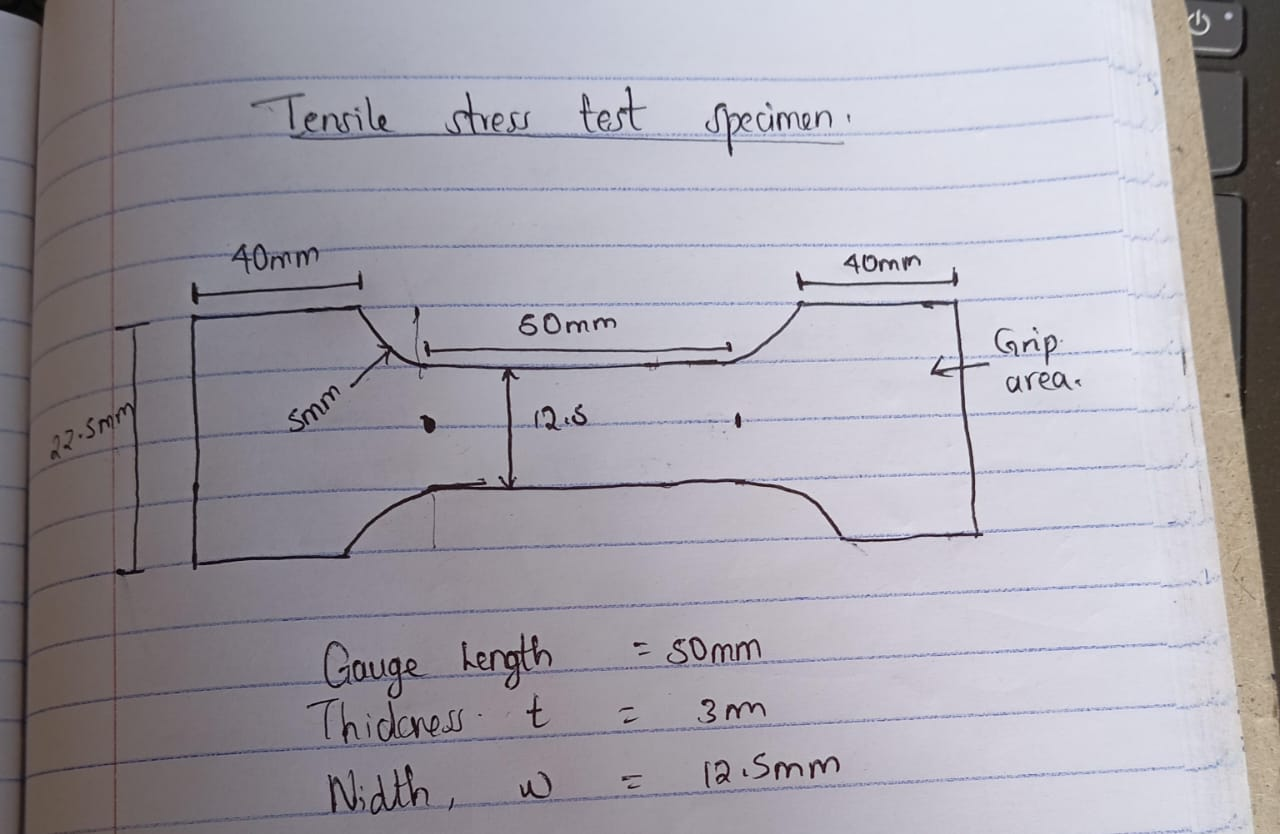 Tensile stress test specimen.
40mm
40mm
50mm
Grip
area.
5mm
12.5
22.5mm
Gauge Length = 50mm
Thickness. t = 3m
Width, w = 12.5mm